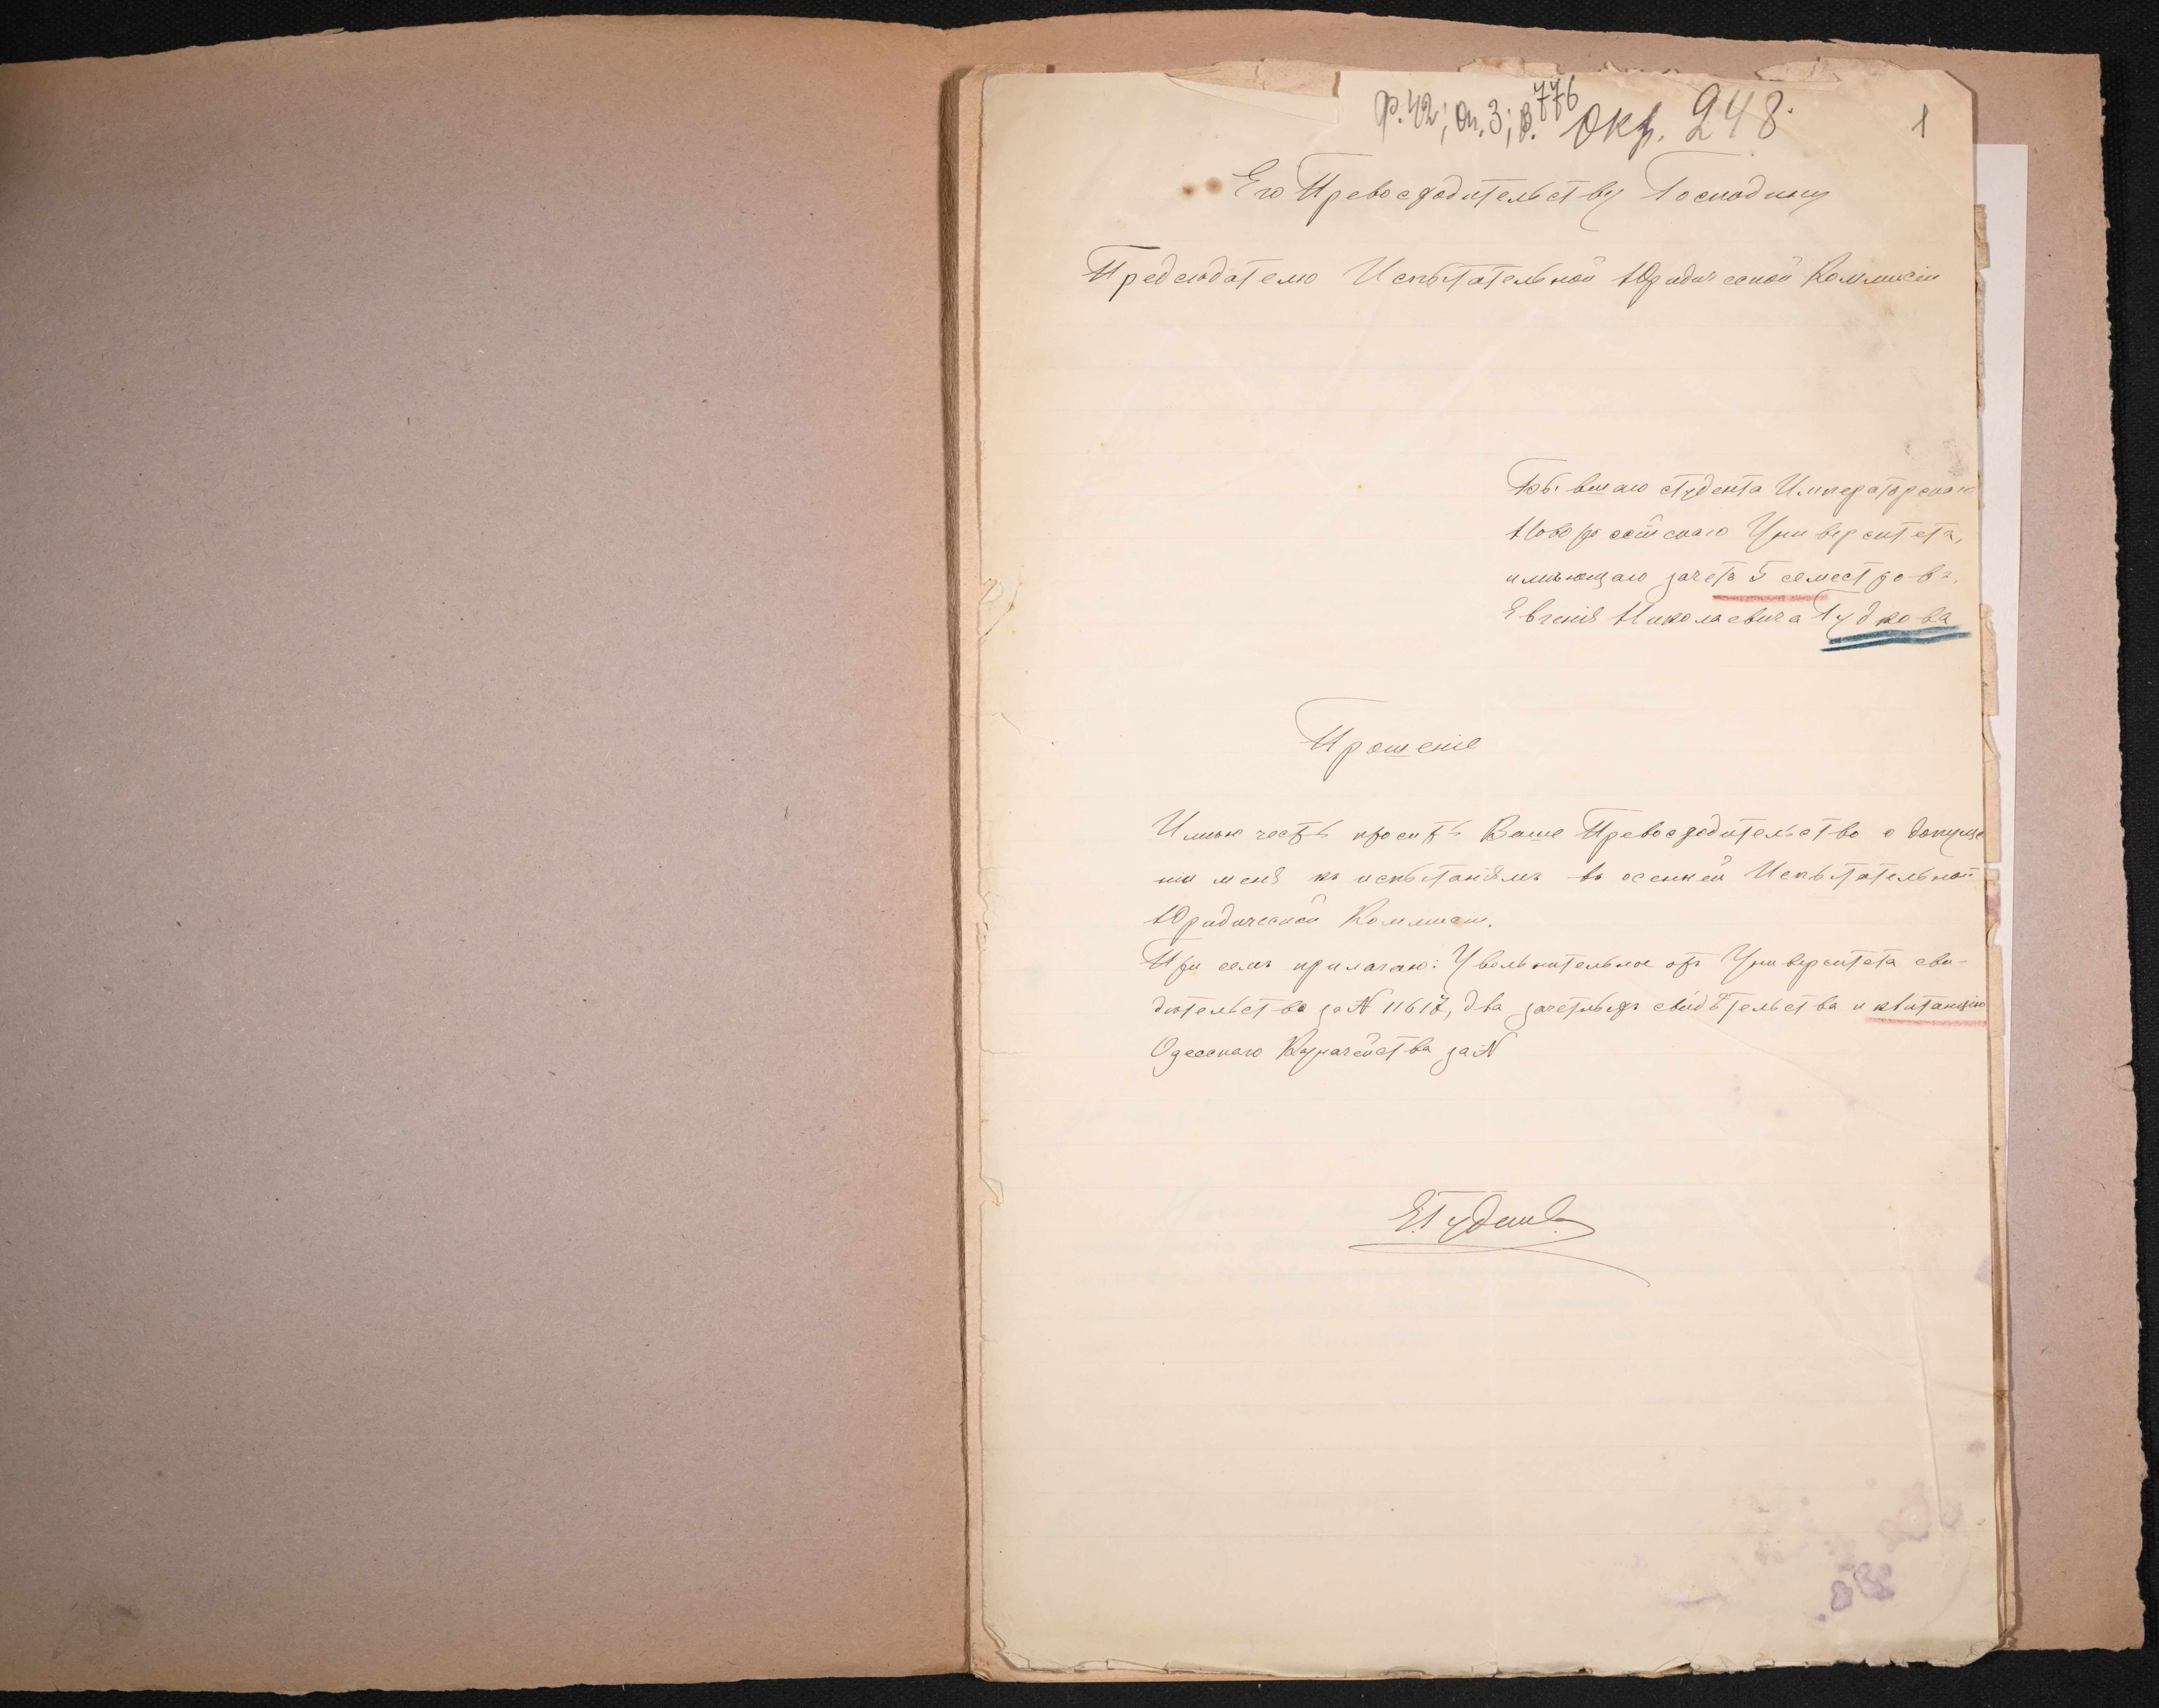 ф.42; оп.3; д.776 Окр. 248. 1
Его Превосходительству Господину
Председателю Испытательной Юридической Коммисіи
Бывшаго студента Императорскаго
Новороссійскаго Университета,
имѣющаго зачетъ 5 семестровъ.
Евгенія Николаевича Гудкова
Прошеніе
Имѣю честь просить Ваше Превосходительство о допуще
нии меня къ испытаніямъ въ осенней Испытательной
Юридической Коммисіи.
При семъ прилагаю: Увольнительное отъ Университета сви-
дѣтельство за № 11617, два зачетныхъ свидѣтельства и квитанцію
Одесскаго Казначейства за №
Е. Гудковъ